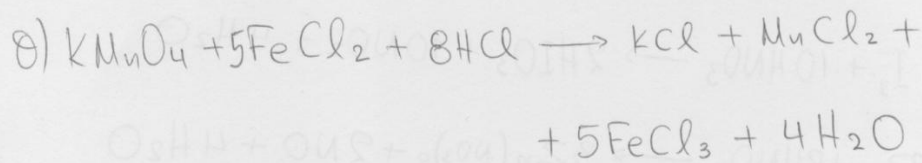 θ) KMnO4 + 5FeCl2 + 8HCl → KCl + MnCl2 +
+ 5FeCl3 + 4H2O